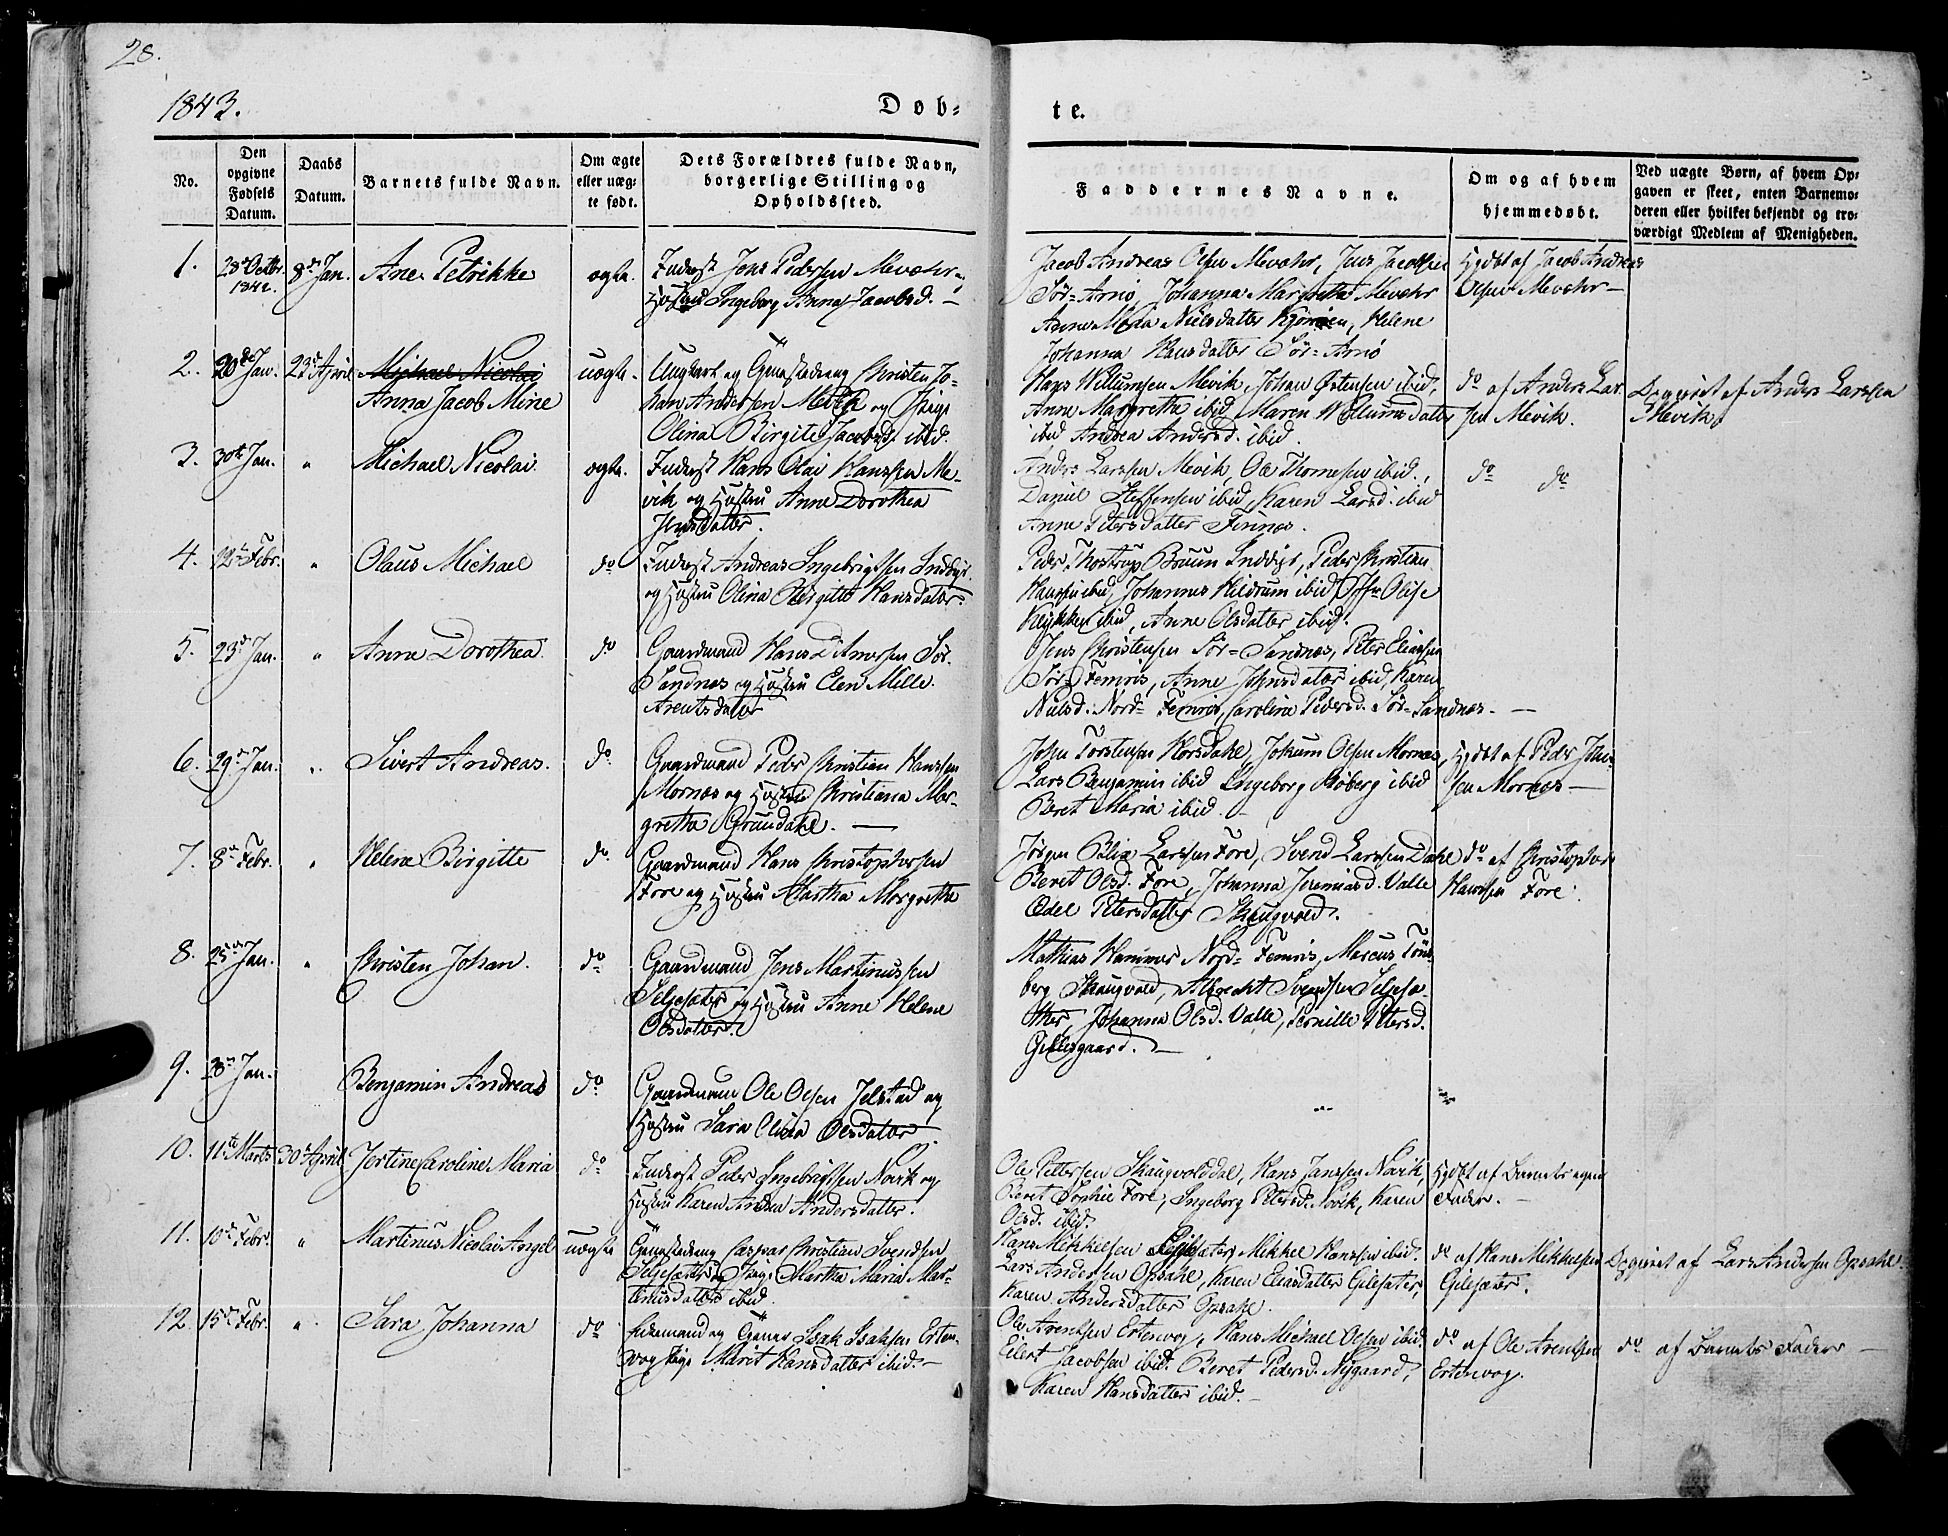 28.
1843.
Døb=
te.
No.
Den opgivne Fødsels Datum.
Daabs Datum.
Barnets fulde Navn.
Om ægte eller uæg= te født.
Dets Forældres fulde Navn, borgerlige Stilling og Opholdssted.
Faddernes Navne.
Om og af hvem hjemmedøbt.
Ved uægte Børn, af hvem Op= gaven er skeet, enten Barnemo= deren eller hvilket bekjendt og tro= værdigt Medlem af Menigheden.
1. 28de Octbr. 1842. 8de Jan. Ane Petrikke ægte.
Inderst Jens Pedersen Mevær
Hustru Ingeborg Anna Jacobsd. —
Jacob Andreas Olsen Mevær, Jens Jacobsen
Sör=Arnö, Johanna Margretha Mevær
Anne Maria Nielsdatter, Helene
Johanna Hansdatter Sör=Arnö
Hjdbt af Jacob Andreas
Olsen Mevær —
2. 20de Jan. 23de April Michael Nicolai
Anna Jacob Mine uægte.
Ungkarl og Christen Jo=
han Andersen Mevik og Pige
Olina Birgite Jacobsd. ibid.
Hans Willumsen Mevik, Johan Østensen ibid,
Anne Margretha ibid Maren Willumsdatter
ibid Andrea Andersd. ibid.
do af Anders Lar
sen Mevik.
Opgivet af Anders Larssen
Mevik
3. 30te Jan. " Michael Nicolai ægte.
Inderst Hans Olai Hanssen Me=
vik og Hustru Anne Dorothea
Jensdatter.
Anders Larssen Mevik, Ole Thomesen ibid,
Daniel Steffensen ibid, Karen Larsd. ibid
Anne Petersdatter Finnes.
do do
4. 12te Febr. " Olaus Michael do
Inderst Andreas Ingebrigtsen Inddyr.
og Hustru Olina Birgitte Hansdatter.
Peder Thostrup Bruun Inddyr, Peder Christian
Hanssen ibid, Johannes Hildrum ibid, Olise
Klykken ibid, Anne Olsdatter ibid.
5. 23de Jan. " Anne Dorothea do
Gaardmand Hans Sör.
Sandnes og Hustru Elen Mille
Arentsdatter
Jens Christensen Sör=Sandnes, Peter Eliassen
Sör=Femris, Anne Johnsdatter ibid, Karen
Nielsd. Nord=Femris, Carolina Pedersd. Sör=Sandnes. —
6. 29de Jan. " Sivert Andreas. do
Gaardmand Peder Christian Hanssen
Mornes og Hustru Christiana Mar=
gretha Grundahl. —
John Torstensen Korsdahl, Jokum Olsen Mornes,
Lars Benjamin ibid Ingeborg Röberg ibid
Beret Maria ibid.
Hjdbt af Peder Johan=
sen Mornes —
7. 8de Febr. " Helene Birgitte do
Gaardmand Hans Christophersen
Fore og Hustru Martha Margretha
Jörgen Blix Larssen Fore, Svend Larssen Dahl
Beret Olsd. Fore, Johanna Jeremiasd. Valle
Edel Petersdatter Skaugvold.
do af Christopher
Hanssen Fore.
8. 25de Jan. " Christen Johan. do
Gaardmand Jens Martinussen
Seljesæter og Hustru Anne Helene
Olsdatter.
Mathias Hammer Nord=Femris, Marcus Töns=
berg Skaugvold, Albrecht Svendsen Seljesæ=
ther, Johanna Olsd. Valle, Pernille Petersd.
Gildesgaard. —
9. 28de Jan. Benjamin Andreas do
Gaardmand Ole Olsen Jelstad og
Hustru Sara Olina Olsdatter
10. 11te Marts 30te April Jertine Caroline Maria do
Inderst Peder Ingebrigtsen Novik og
Hustru Karen Andrea Andersdatter.
Ole Pettersen Skaugvolddal, Hans Janssen Novik,
Beret Sophie Fore, Ingeborg Petersd. Novik, Karen
Olsd. ibid.
Hjdbt af Barnets egen
Fader. —
11. 10de Febr. " Martinus Nicolai Angel uægte
Gaspar Christian Svendsen
Seljesæter og Pige Martha Maria Mar=
tinusdatter ibid.
Hans Mikkelsen Mikkel Hanssen ibid.
Lars Andersen Opsahl, Karen Eliasdatter Gilesæter,
Karen Andersdatter Opsahl.
do af Hans Mikkelsen
Gilesæter.
Opgivet af Lars Andersen Opsahl
12. 15de Febr. " Sara Johanna do
Isak Isaksen Erten=
vog Pige Marit Hansdatter ibid. —
Ole Arentsen Ertenvog, Hans Michael Olsen ibid.
Eilert Jacobsen ibid. Beret Pedersd. Nygaard,
Karen Hansdatter ibid. —
do af Ole Arentsen
Ertenvog.
do af Barnets Fader —